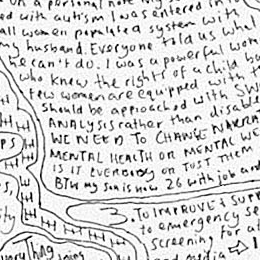 on a personal note my
ed with autism I was entered in to
all women populated system with
my husband. Everyone told us what
he can't do. I was a powerful wom
who knew the rights of a child bu
few women are equipped with t
should be approached with SW
ANALYSIS rather than disable
WE NEED TO CHANGE NARRA
MENTAL HEALTH OR MENTAL WE
IS IT EVERYBODY OR JUST THEM
BTW my son is now 26 with job and
PS
3. TO IMPROVE & SUPP
to emergency se
screening for a
s,
ity
very Thing
ning
nd media